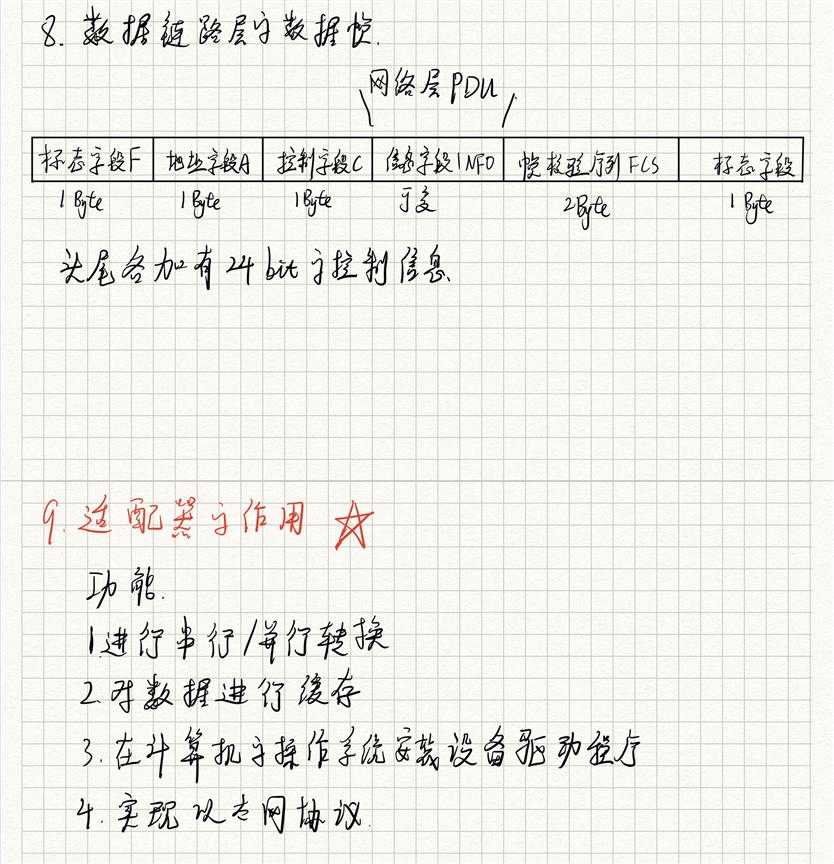 8. 数据链路层的数据帧.
网络层PDU
标志字段F 地址字段A 控制字段C 信息字段INFO 帧校验序列FCS 标志字段
1Byte 1Byte 1Byte 可变 2Byte 1Byte
头尾各加有24bit的控制信息.
9. 适配器的作用 ☆
功能.
1.进行串行/并行转换
2.对数据进行缓存
3.在计算机的操作系统安装设备驱动程序
4.实现以太网协议.